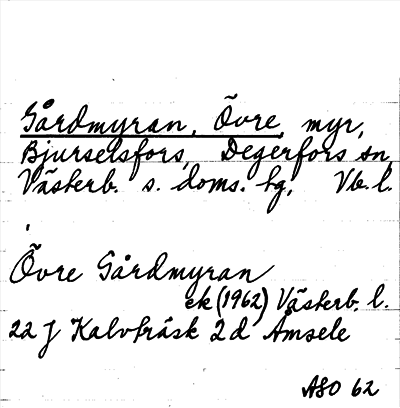 Gårdmyran, Övre, myr,
Bjurselsfors, Degerfors sn,
Västerb. s. doms. tg, Vb. l.
Övre Gårdmyran
ek (1962) Västerb. l.
22 J Kalvträsk 2 d Åmsele
ASO 62